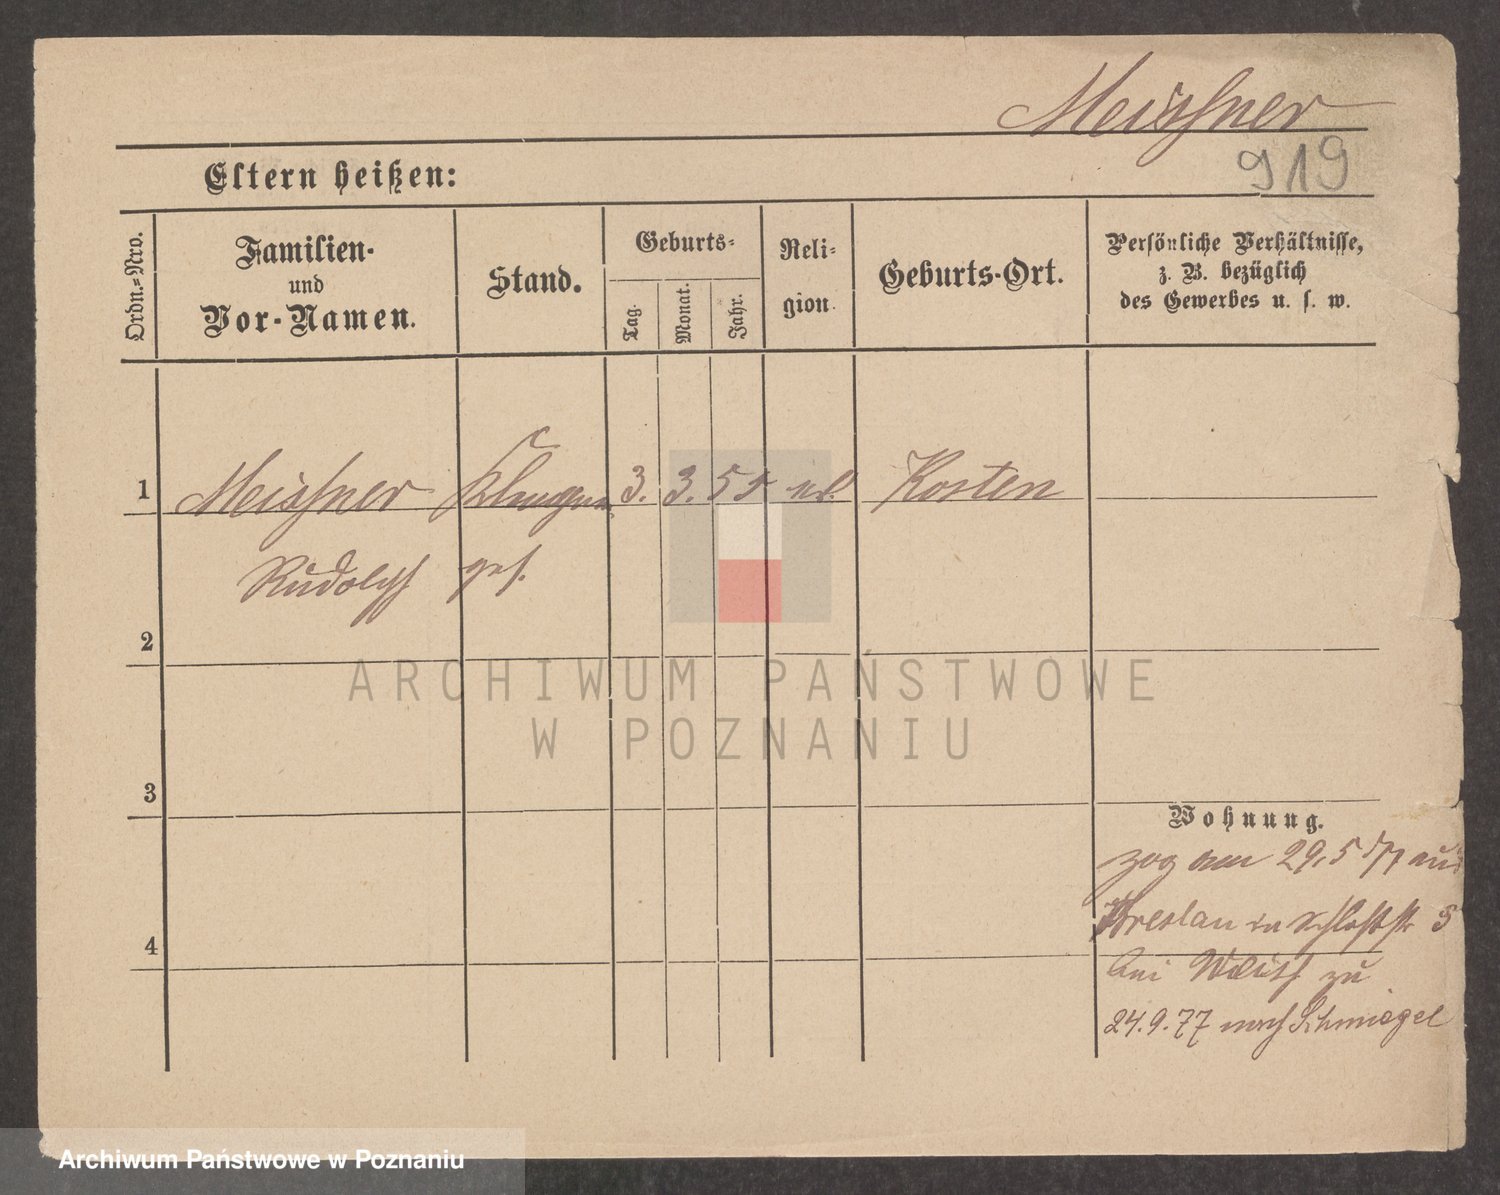 Meißner
919
Eltern heißen:
Ordn.=Nro.
Familien-
und
Vor-Namen.
Stand.
Geburts=
Tag.
Monat.
Jahr.
Reli-
gion.
Geburts-Ort.
Persönliche Verhältnisse,
z. B. bezüglich
des Gewerbes u. s. w.
1 Meißner 3. 3. 55 Kosten
Rudolph ges.
2
3
4
Wohnung.
zog am 29.5 77 aus
Breslau Schloßstr 5
bei zu
24.9.77 nach Schmiegel
ARCHIWUM PAŃSTWOWE
W POZNANIU
Archiwum Państwowe w Poznaniu